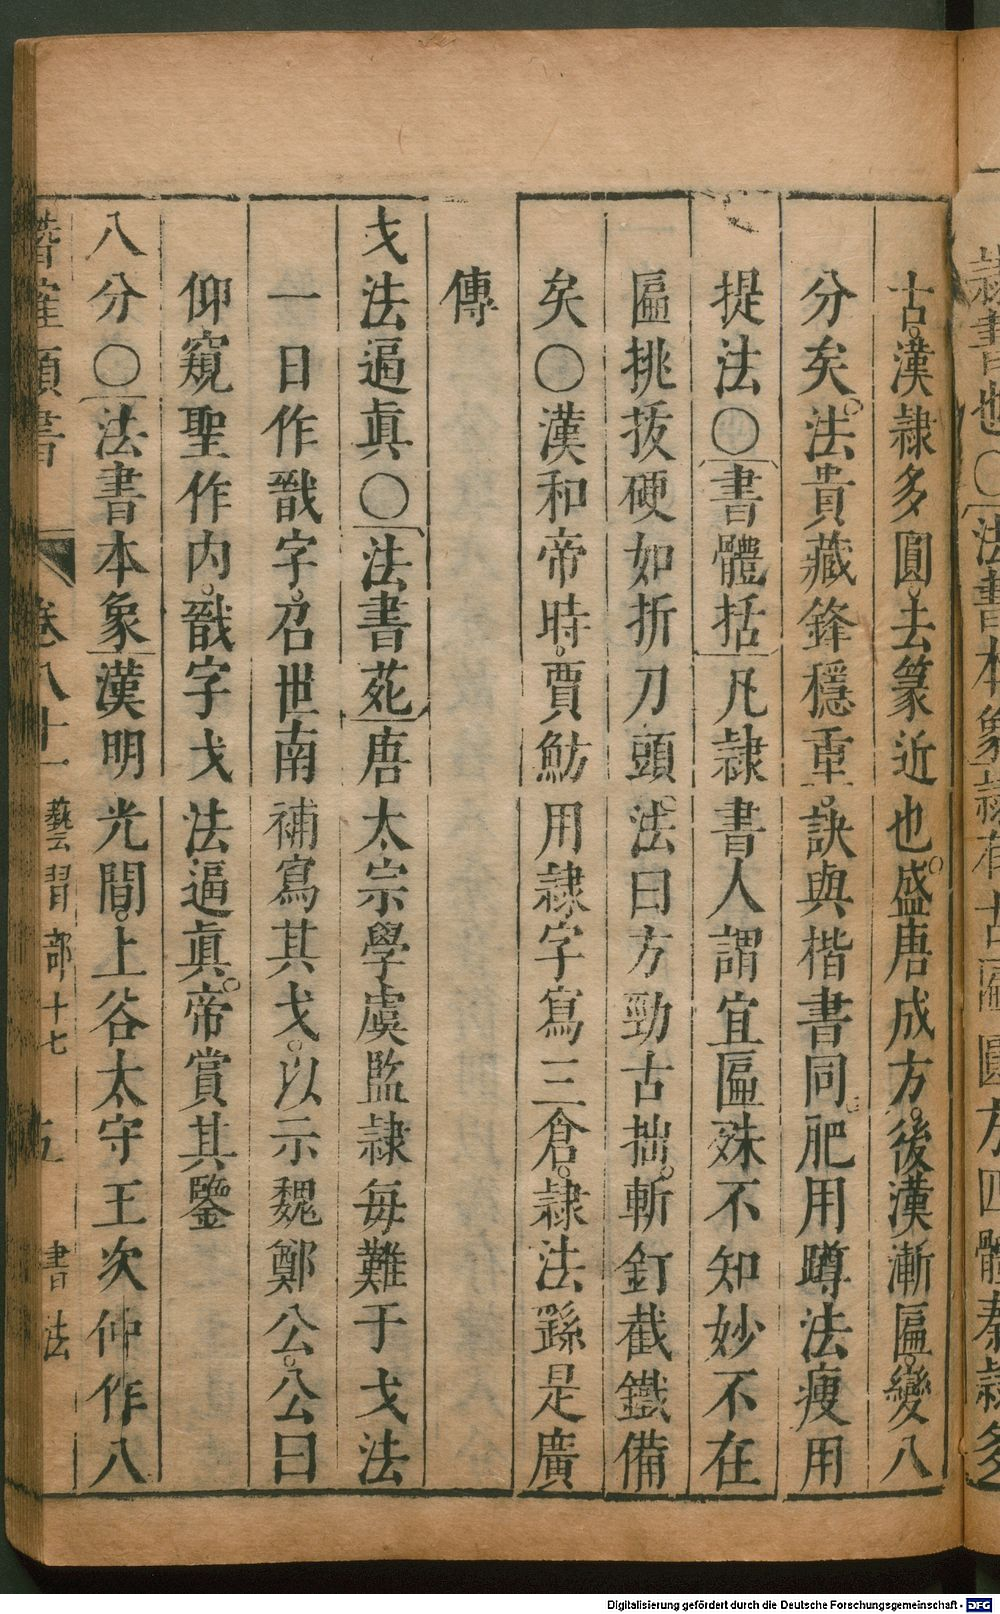 隸書也○法書本象隸有古隸圓方四體秦隸多
古漢隸多圓去篆近也盛唐成方後漢漸匾變八
分矣法貴藏鋒穩重訣與楷書同肥用蹲法瘦用
提法○書體括凡隸書人謂宜匾殊不知妙不在
匾挑拔硬如折刀頭法曰方勁古拙斬釘截鐵備
矣○漢和帝時賈魴用隸字寫三倉隸法繇是廣
傳
戈法逼眞○法書苑唐太宗學虞監隸每難于戈法
一日作戩字召世南補寫其戈以示魏鄭公公曰
仰窺聖作内戩字戈法逼眞帝賞其鑒
八分○法書本象漢明光間上谷太守王次仲作八
潛確類書 卷八十一 藝習部十七 五 書法
Digitalisierung gefördert durch die Deutsche Forschungsgemeinschaft - DFG